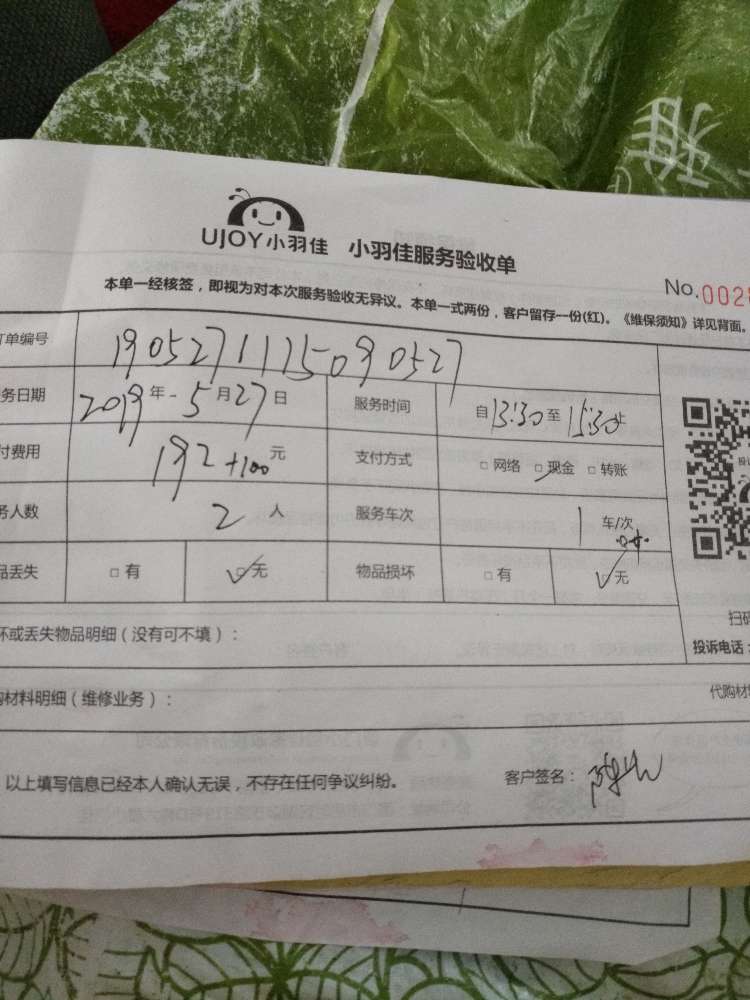 雅
UJOY小羽佳 小羽佳服务验收单
No.002
本单一经核签，即视为对本次服务验收无异议。本单一式两份，客户留存一份(红)。《维保须知》详见背面。
订单编号 1905271115090527
务日期 2019年-5月27日 服务时间 自13:30至15:30止
付费用 192+100元 支付方式 □网络 □现金 □转账
务人数 2人 服务车次 1车/次
品丢失 □有 □无 物品损坏 □有 □无
坏或丢失物品明细（没有可不填）： 扫码
投诉电话：
购材料明细（维修业务）： 代购材
以上填写信息已经本人确认无误，不存在任何争议纠纷。 客户签名：